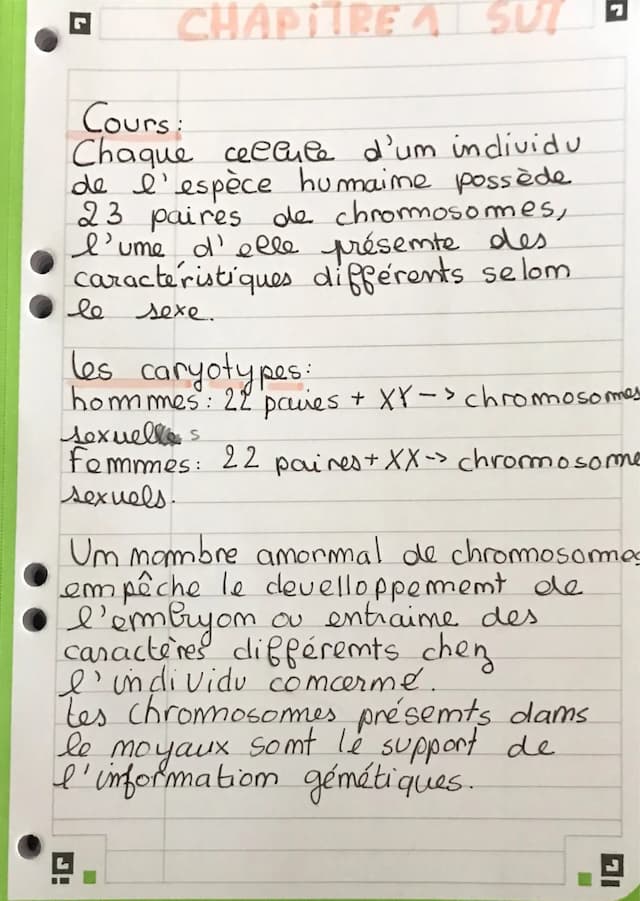 CHAPITRE 1 SVT
Cours:
Chaque cellule d'un individu
de l'espèce humaine possède
23 paires de chromosomes,
l'une d'elle présente des
caractéristiques différents selon
le sexe.
Les caryotypes:
hommes: 22 paires + XY -> chromosomes
sexuels
Femmes: 22 paires + XX -> chromosome
sexuels.
Un nombre anormal de chromosomes
empêche le develloppement de
l'embryon ou entraine des
caractères différents chez
l'individu concerné.
Les chromosomes présents dans
le noyaux sont le support de
l'information génétiques.